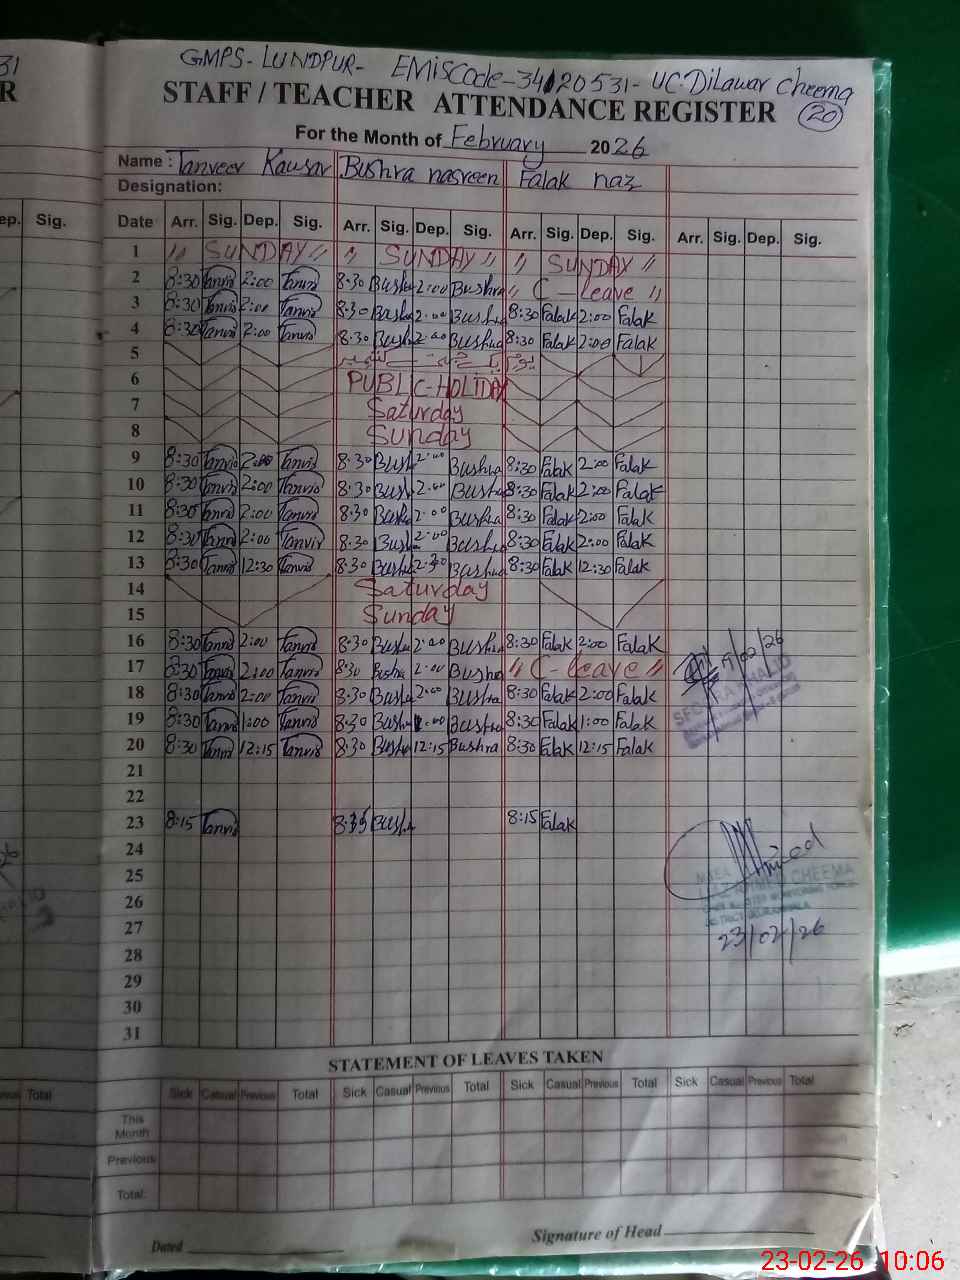 31
GMPS- LUNDPUR- EMISCode-34120531- UC.Dilawar Cheema
R STAFF / TEACHER ATTENDANCE REGISTER 20
For the Month of February 2026
Name : Tanveer Kausar Bushra nasreen Falak naz
Designation:
ep. Sig. Date Arr. Sig. Dep. Sig. Arr. Sig. Dep. Sig. Arr. Sig. Dep. Sig. Arr. Sig. Dep. Sig.
1 " SUNDAY " " SUNDAY " " SUNDAY "
2 8:30 Tanvir 2:00 Tanvir 8.30 Bushra 2:00 Bushra " C - leave "
3 8:30 Tanvir 2:00 Tanvir 8.30 Bushra 2.00 Bushra 8:30 Falak 2:00 Falak
4 8:30 Tanvir 2:00 Tanvir 8.30 Bushra 2.00 Bushra 8:30 Falak 2:00 Falak
5 یوم یکجہتی کشمیر
6 PUBLIC-HOLIDAY
7 Saturday
8 Sunday
9 8:30 Tanvir 2:00 Tanvir 8.30 Bushra 2:00 Bushra 8:30 Falak 2:00 Falak
10 8:30 Tanvir 2:00 Tanvir 8.30 Bushra 2.00 Bushra 8:30 Falak 2:00 Falak
11 8:30 Tanvir 2:00 Tanvir 8.30 Bushra 2.00 Bushra 8:30 Falak 2:00 Falak
12 8:30 Tanvir 2:00 Tanvir 8.30 Bushra 2:00 Bushra 8:30 Falak 2:00 Falak
13 8:30 Tanvir 12:30 Tanvir 8.30 Bushra Bushra 8:30 Falak 12:30 Falak
14 Saturday
15 Sunday
16 8:30 Tanvir 2:00 Tanvir 8.30 Bushra 2.00 Bushra 8:30 Falak 2:00 Falak
17 8:30 Tanvir 2:00 Tanvir 8.30 Bushra 2.00 Bushra " C- leave "
18 8:30 Tanvir 2:00 Tanvir 8.30 Bushra 2:00 Bushra 8:30 Falak 2:00 Falak
19 8:30 Tanvir 1:00 Tanvir 8.30 Bushra 1.00 Bushra 8:30 Falak 1:00 Falak
20 8:30 Tanvir 12:15 Tanvir 8.30 Bushra 12:15 Bushra 8:30 Falak 12:15 Falak
21
22
23 8:15 Tanvir Bushra 8:15 Falak
24
25
26
27
28
29
30
31
CHEEMA
23/02/26
STATEMENT OF LEAVES TAKEN
Total Sick Casual Previous Total Sick Casual Previous Total Sick Casual Previous Total Sick Casual Previous Total
This Month
Previous
Total:
Dated Signature of Head
23-02-26 10:06